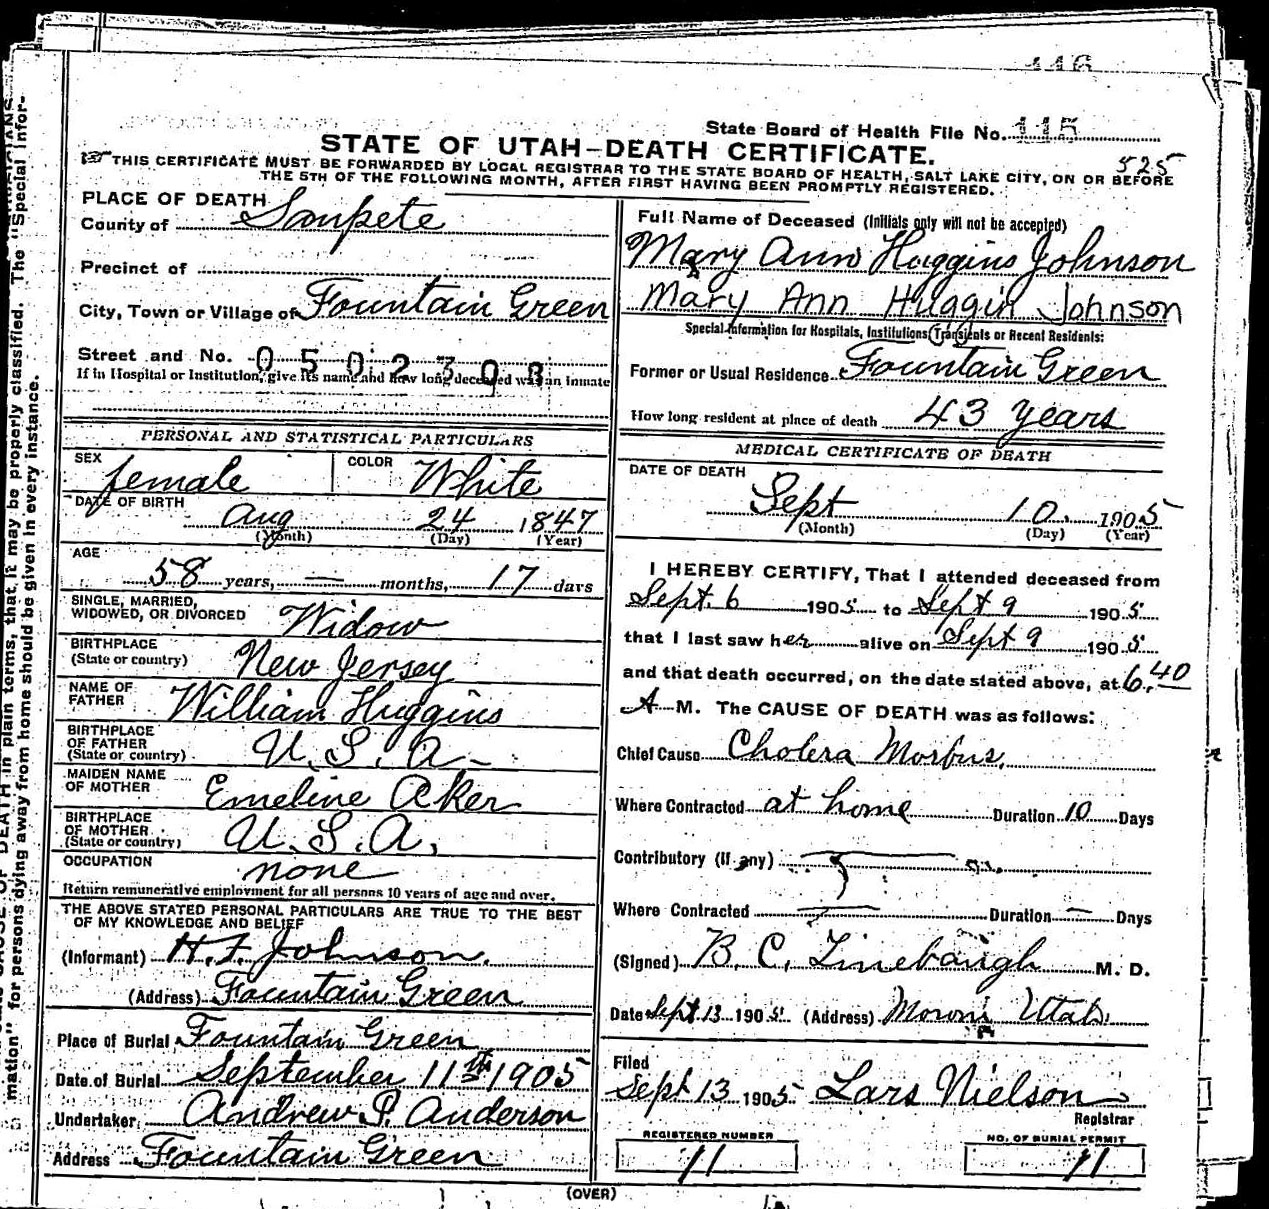 116
State Board of Health File No. 115
STATE OF UTAH—DEATH CERTIFICATE.
525
THIS CERTIFICATE MUST BE FORWARDED BY LOCAL REGISTRAR TO THE STATE BOARD OF HEALTH, SALT LAKE CITY, ON OR BEFORE
THE 5TH OF THE FOLLOWING MONTH, AFTER FIRST HAVING BEEN PROMPTLY REGISTERED.
PLACE OF DEATH
County of Sanpete
Precinct of
City, Town or Village of Fountain Green
Street and No. 0502308
If in Hospital or Institution, give its name and how long deceased was an inmate
PERSONAL AND STATISTICAL PARTICULARS
SEX female COLOR White
DATE OF BIRTH
Aug 24 1847
(Month) (Day) (Year)
AGE
58 years, — months, 17 days
SINGLE, MARRIED,
WIDOWED, OR DIVORCED Widow
BIRTHPLACE
(State or country) New Jersey
NAME OF
FATHER William Huggins
BIRTHPLACE
OF FATHER
(State or country) U. S. A.
MAIDEN NAME
OF MOTHER Emeline Aker
BIRTHPLACE
OF MOTHER
(State or country) U. S. A.
OCCUPATION none
Return remunerative employment for all persons 10 years of age and over.
THE ABOVE STATED PERSONAL PARTICULARS ARE TRUE TO THE BEST
OF MY KNOWLEDGE AND BELIEF
(Informant) H. F. Johnson.
(Address) Fountain Green
Place of Burial Fountain Green
Date of Burial September 11th 1905
Undertaker Andrew P. Anderson
Address Fountain Green
Full Name of Deceased (Initials only will not be accepted)
Mary Ann Huggins Johnson
Mary Ann Huggin Johnson
Special Information for Hospitals, Institutions, Transients or Recent Residents:
Former or Usual Residence Fountain Green
How long resident at place of death 43 years
MEDICAL CERTIFICATE OF DEATH
DATE OF DEATH
Sept 10 1905
(Month) (Day) (Year)
I HEREBY CERTIFY, That I attended deceased from
Sept. 6 1905 to Sept 9 1905
that I last saw her alive on Sept 9 1905
and that death occurred, on the date stated above, at 6.40
A M. The CAUSE OF DEATH was as follows:
Chief Cause Cholera Morbus.
Where Contracted at home Duration 10 Days
Contributory (if any)
Where Contracted — Duration — Days
(Signed) B. C. Linebaugh M. D.
Date Sept 13 1905 (Address) Moroni Utah.
Filed
Sept 13 1905 Lars Nielson
Registrar
REGISTERED NUMBER NO. OF BURIAL PERMIT
11 11
(OVER)
mation" for persons dying away from home should be given in every instance.
OF DEATH in plain terms, that it may be properly classified. The "Special Infor-